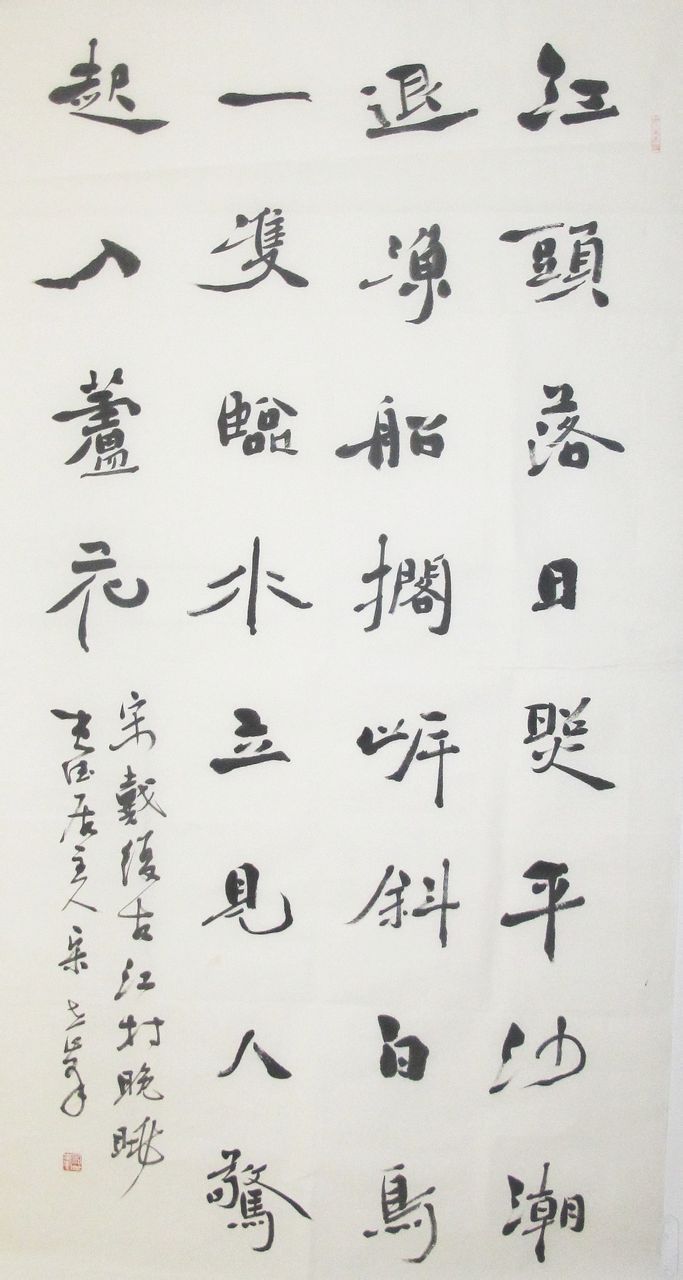 江頭落日照平沙潮
退漁船擱岸斜白鳥
一雙臨水立見人驚
起入蘆花
宋戴復古江村晚眺
居主人宋